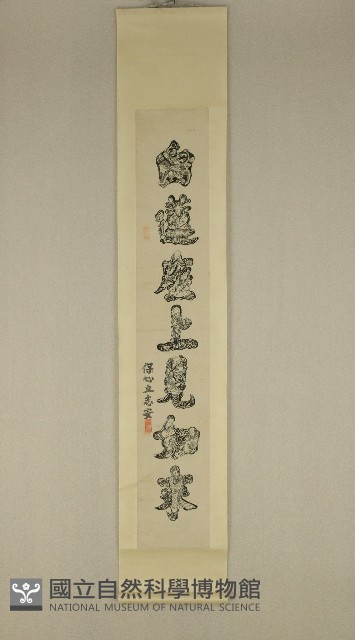 白蓮座上見如來
保心立志安
國立自然科學博物館
NATIONAL MUSEUM OF NATURAL SCIENCE